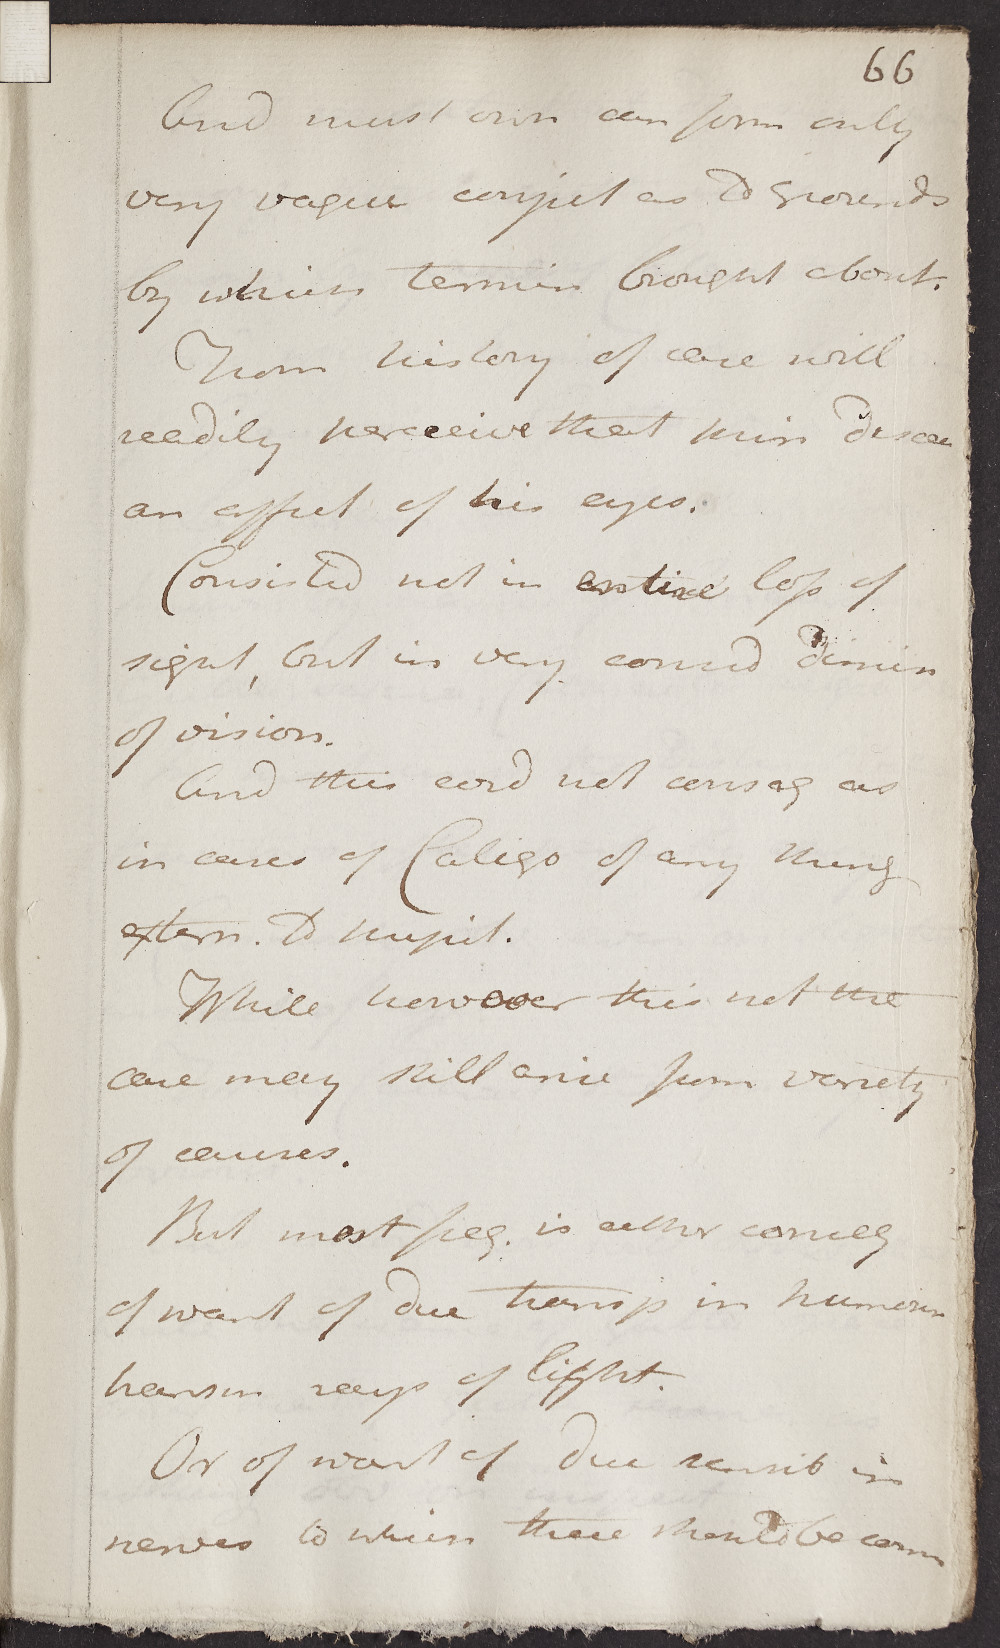 66
And must own can form only
very vague conject as to grounds
by which termin brought about.
From history of case will
readily perceive that prin disea
an affect of his eyes.
Consisted not in entire loss of
sight, but in very consid dimin
of vision.
And this coud not conseq as
in cases of Caligo of any thing
extern. to pupil.
While however this not the
case may still arise from variety
of causes.
But most freq. is either conseq
of want of due transp in humours
transm rays of light.
Or of want of due sensib in
nerves to which these should be comm